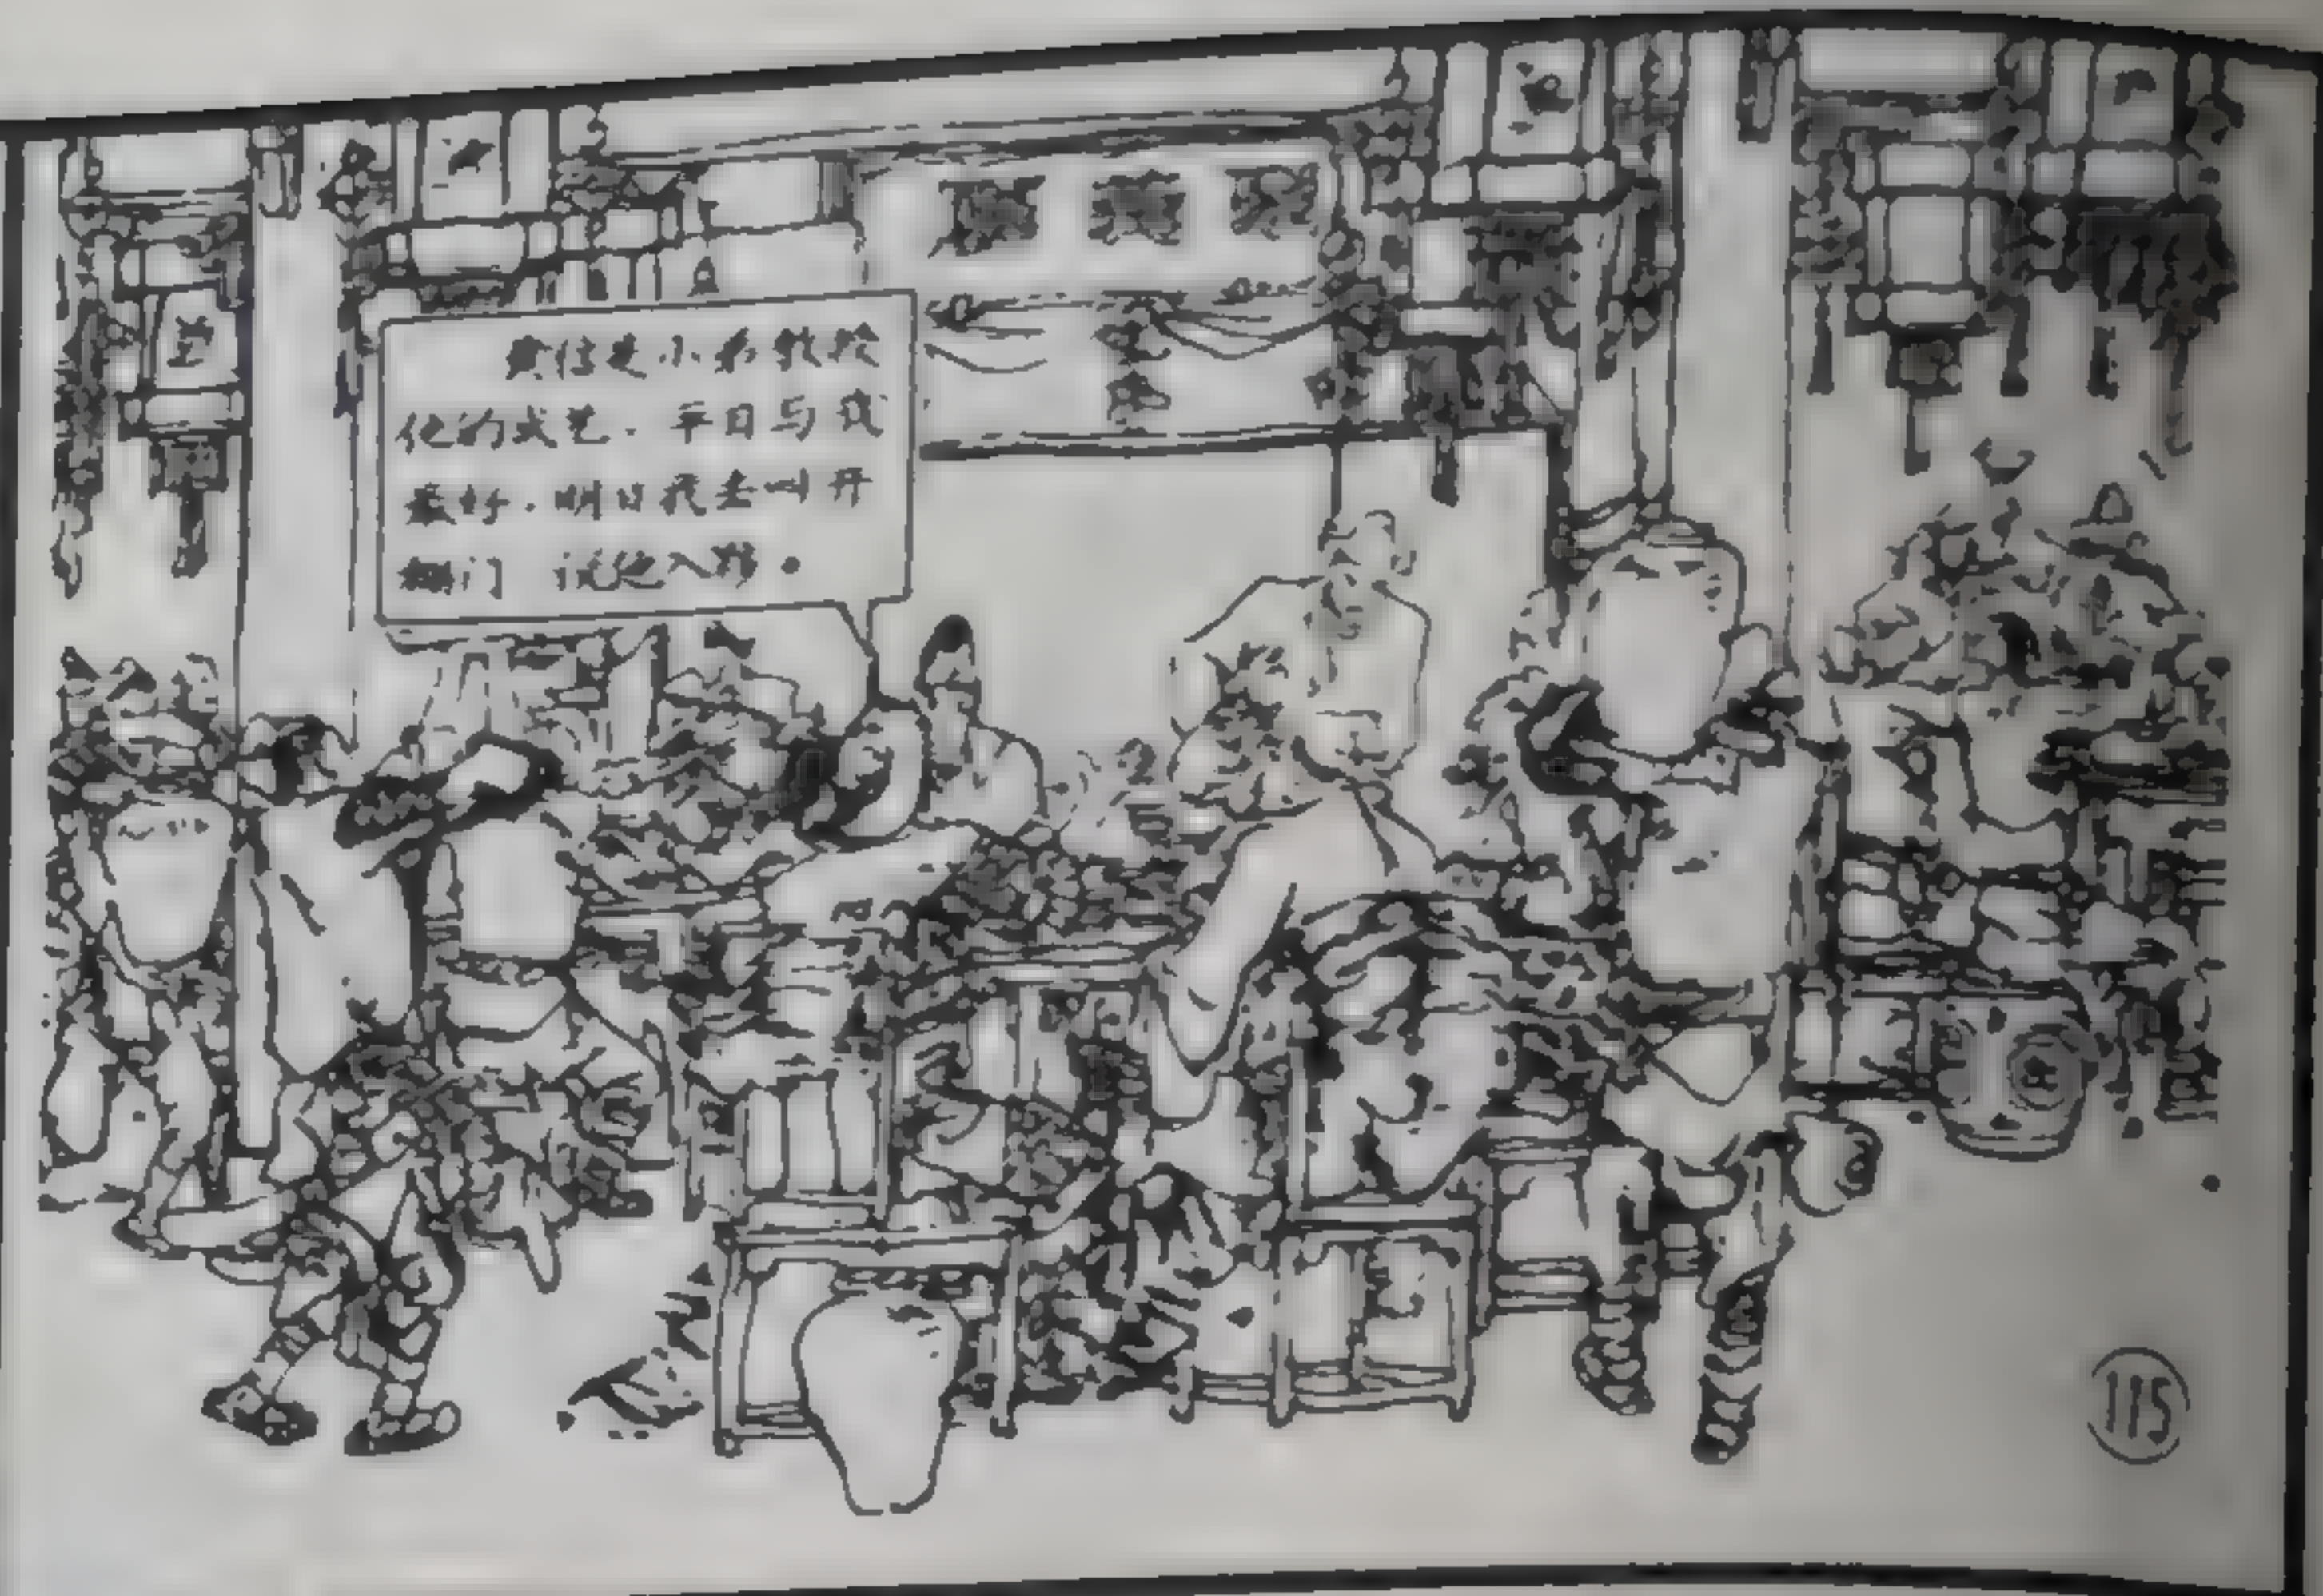 黄信是小弟教授
他的武艺.平日与我
最好.明日我去叫开
栅门 说他入夥.
115